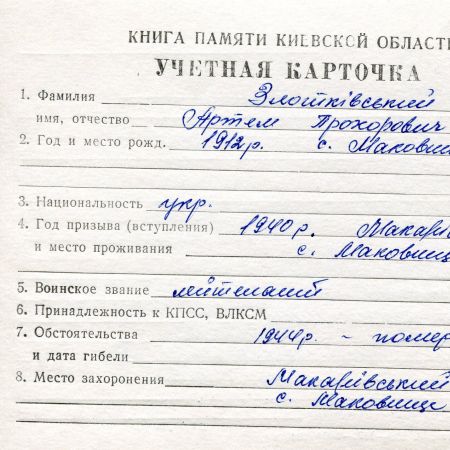 КНИГА ПАМЯТИ КИЕВСКОЙ ОБЛАСТ
УЧЕТНАЯ КАРТОЧКА
1. Фамилия Злотківський
имя, отчество Артем Прохорович
2. Год и место рожд. 1912р. с. Маковищ
3. Национальность укр.
4. Год призыва (вступления) 1940р. Макарів
и место проживания с. Маковище
5. Воинское звание лейтенант
6. Принадлежность к КПСС, ВЛКСМ
7. Обстоятельства 1944р. - помер
и дата гибели
8. Место захоронения Макарівський
с. Маковище